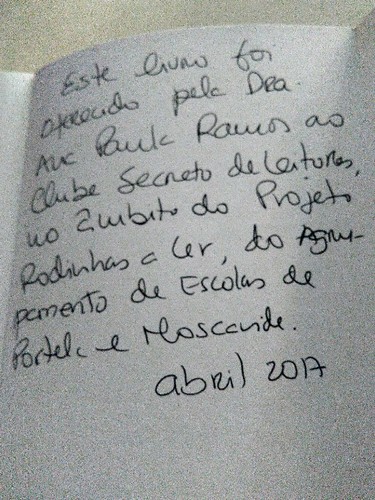 Este livro foi
oferecido pela Dra.
Ana Paula Ramos ao
Clube Secreto de Leitores,
no âmbito do Projeto
Rodinhas a Ler, do Agru-
pamento de Escolas de
Portela e Moscavide.
abril 2017